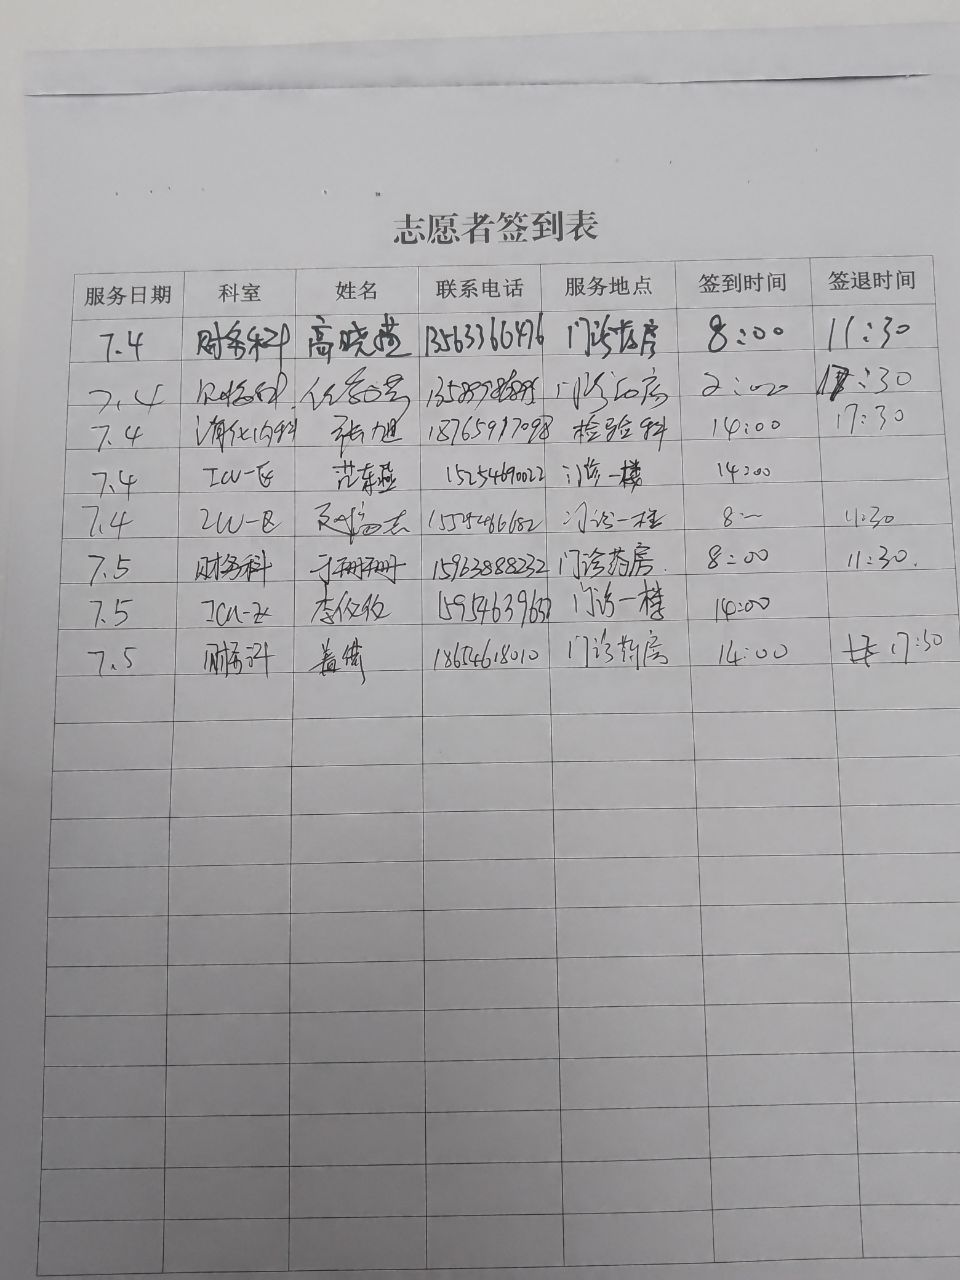 志愿者签到表
服务日期 科室 姓名 联系电话 服务地点 签到时间 签退时间
7.4 财务科 高晓燕 13563366476 门诊药房 8:00 11:30
7.4 财务科 门诊药房 2:00 17:30
7.4 消化内科 张旭 18765917098 检验科 14:00 17:30
7.4 ICU-E 范东燕 15254690022 门诊一楼 14:00
7.4 门诊一楼 8:— 11:30
7.5 财务科 于珊珊 15963888232 门诊药房. 8:00 11:30.
7.5 李仪仪 门诊一楼 14:00
7.5 财务科 盖倩 18654618010 门诊药房 14:00 17:30